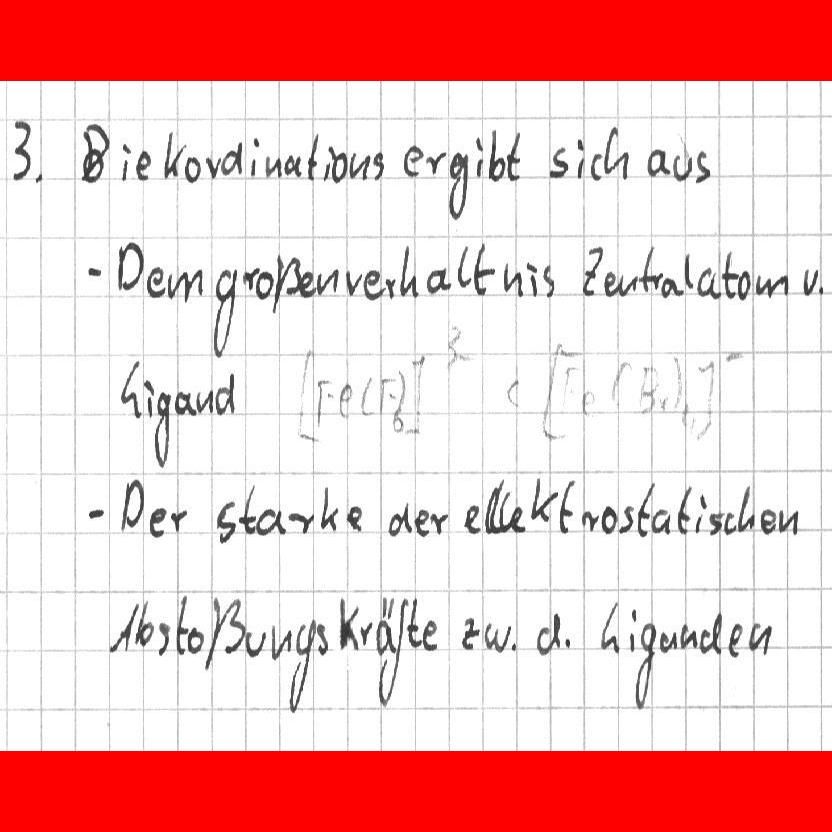 3. Die kordinations ergibt sich aus
- Dem großenverhaltnis Zentralatom u.
Ligand [Fe(F)6]3- < [Fe(Br)4]-
- Der starke der ellektrostatischen
Abstoßungskräfte zw. d. Liganden